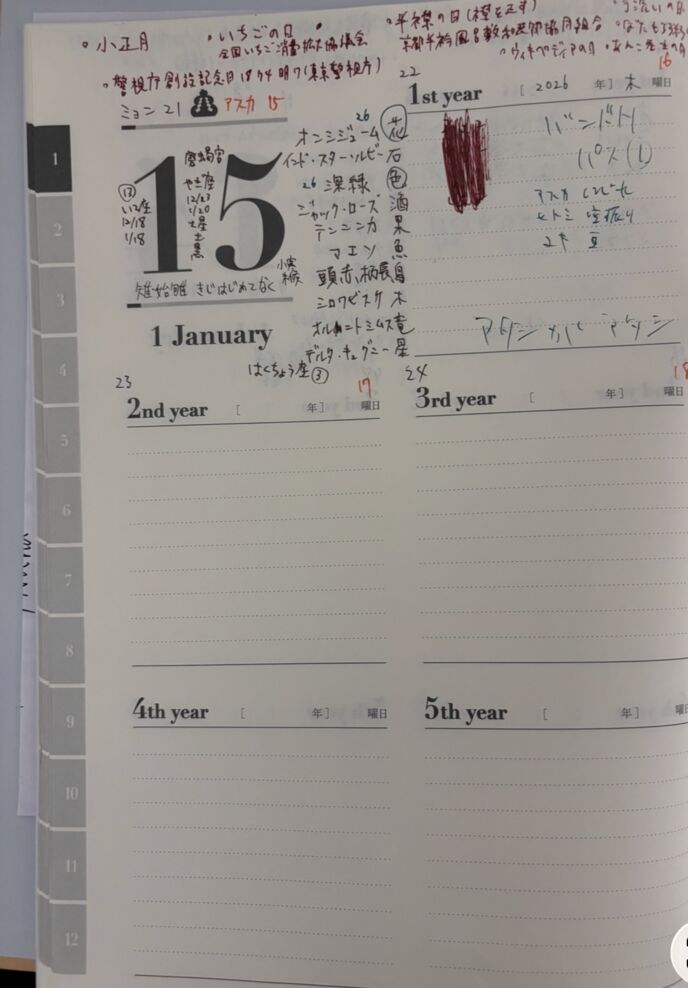 ・小正月
・いちごの日
全国いちご消費拡大協議会
・半襟の日(襟を正す)
京都半衿風呂敷和装卸協同組合
・ウィキペディアの日
・警視庁創設記念日 1874 明7(東京警視庁)
ミョン 21 アスカ 15
15
磨羯宮
やぎ座
12/23
1/20
土星
土
⑬
いて座
12/18
1/18
小寒
末候
雉始雊 きじはじめてなく
1 January
26
オンシジューム 花
インド・スター・ルビー 石
26 深緑 色
ジャック・ローズ 酒
テンニンカ 果
マエソ 魚
頭赤柄長 鳥
シロワビスケ 木
オルニトミムス 竜
デルタ・キグニー 星
はくちょう座 ③
22 16
1st year [ 2026 年] 木 曜日
23 17
2nd year [ 年] 曜日
24 18
3rd year [ 年]
4th year [ 年] 曜日
5th year [ 年]
1
2
3
4
5
6
7
8
9
10
11
12